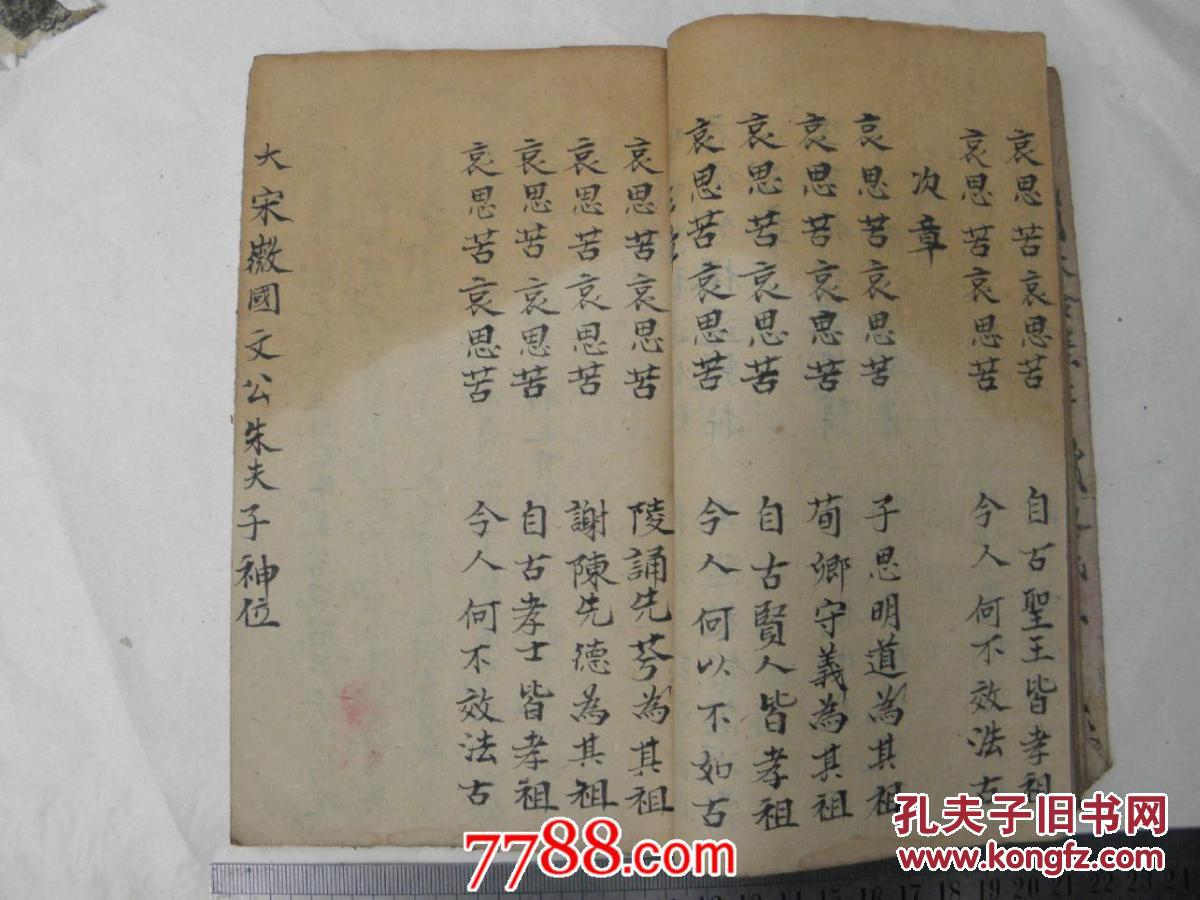 哀思苦哀思苦 自古聖王皆孝祖
哀思苦哀思苦 今人何不效法古
次章
哀思苦哀思苦 子思明道為其祖
哀思苦哀思苦 荀卿守義為其祖
哀思苦哀思苦 自古賢人皆孝祖
哀思苦哀思苦 今人何以不如古
哀思苦哀思苦 陵誦先芬為其祖
哀思苦哀思苦 謝陳先德為其祖
哀思苦哀思苦 自古孝士皆孝祖
哀思苦哀思苦 今人何不效法古
大宋徽國文公朱夫子神位
7788.com
孔夫子旧书网
www.kongfz.com
13 14 15 16 17 18 19 20 21 22 23 24